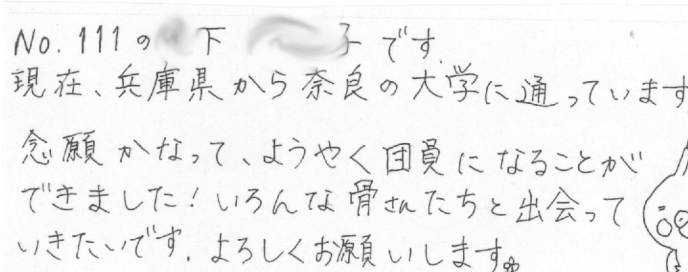 No. 111の 下 子です.
現在、兵庫県から奈良の大学に通っています
念願かなって、ようやく団員になることが
できました！いろんな骨さんたちと出会って
いきたいです.よろしくお願いします。